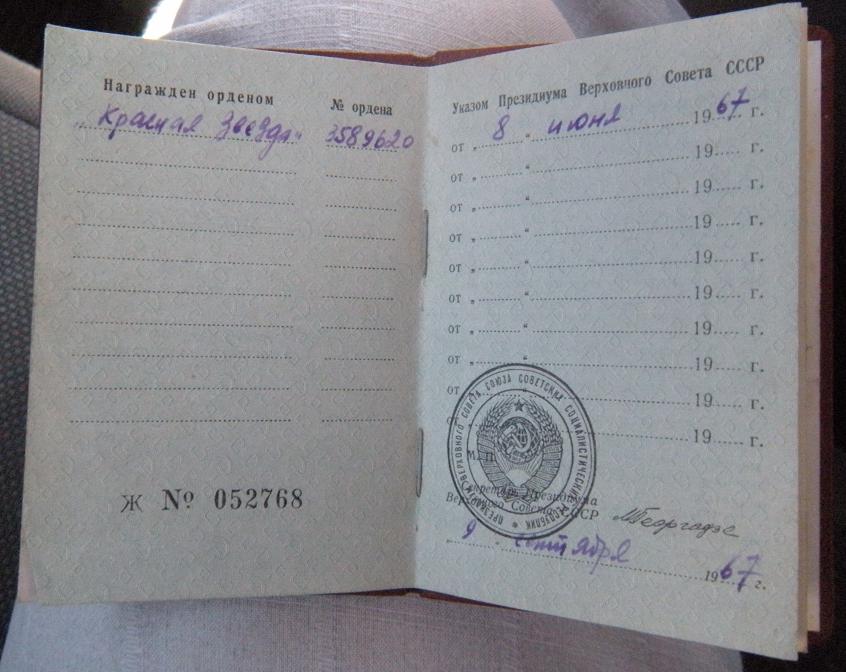 Награжден орденом
№ ордена
„Красная Звезда“ 3589620
Ж № 052768
Указом Президиума Верховного Совета СССР
от „ 8 “ июня 1967 г.
от „ “ 19 г.
от „ “ 19 г.
от „ “ 19 г.
от „ “ 19 г.
от „ “ 19 г.
от „ “ 19 г.
от „ “ 19 г.
от „ “ 19 г.
19 г.
ПРЕЗИДИУМ ВЕРХОВНОГО СОВЕТА СОЮЗА СОВЕТСКИХ СОЦИАЛИСТИЧЕСКИХ РЕСПУБЛИК
М. П.
Секретарь Президиума
Верховного Совета СССР МГеоргадзе
„ 9 “ сентября 1967 г.